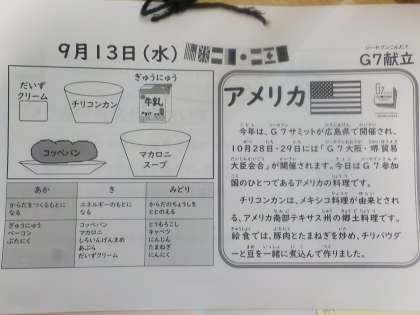 9月13日(水)
ジーセブンこんだて
G7献立
だいず
クリーム
チリコンカン
ぎゅうにゅう
牛乳
コッペパン
マカロニ
スープ
あか
き
みどり
からだをつくるもとに
なる
エネルギーのもとに
なる
からだのちょうしを
ととのえる
ぎゅうにゅう
ベーコン
ぶたにく
コッペパン
マカロニ
しろいんげんまめ
あぶら
だいずクリーム
とうもろこし
キャベツ
にんじん
たまねぎ
にんにく
アメリカ
今年は、G7サミットが広島県で開催され、
10月28日・29日には「G7大阪・堺貿易
大臣会合」が開催されます。今日はG7参加
国のひとつであるアメリカの料理です。
チリコンカンは、メキシコ料理が由来とされ
る、アメリカ南部テキサス州の郷土料理です。
給食では、豚肉とたまねぎを炒め、チリパウダ
ーと豆を一緒に煮込んで作りました。